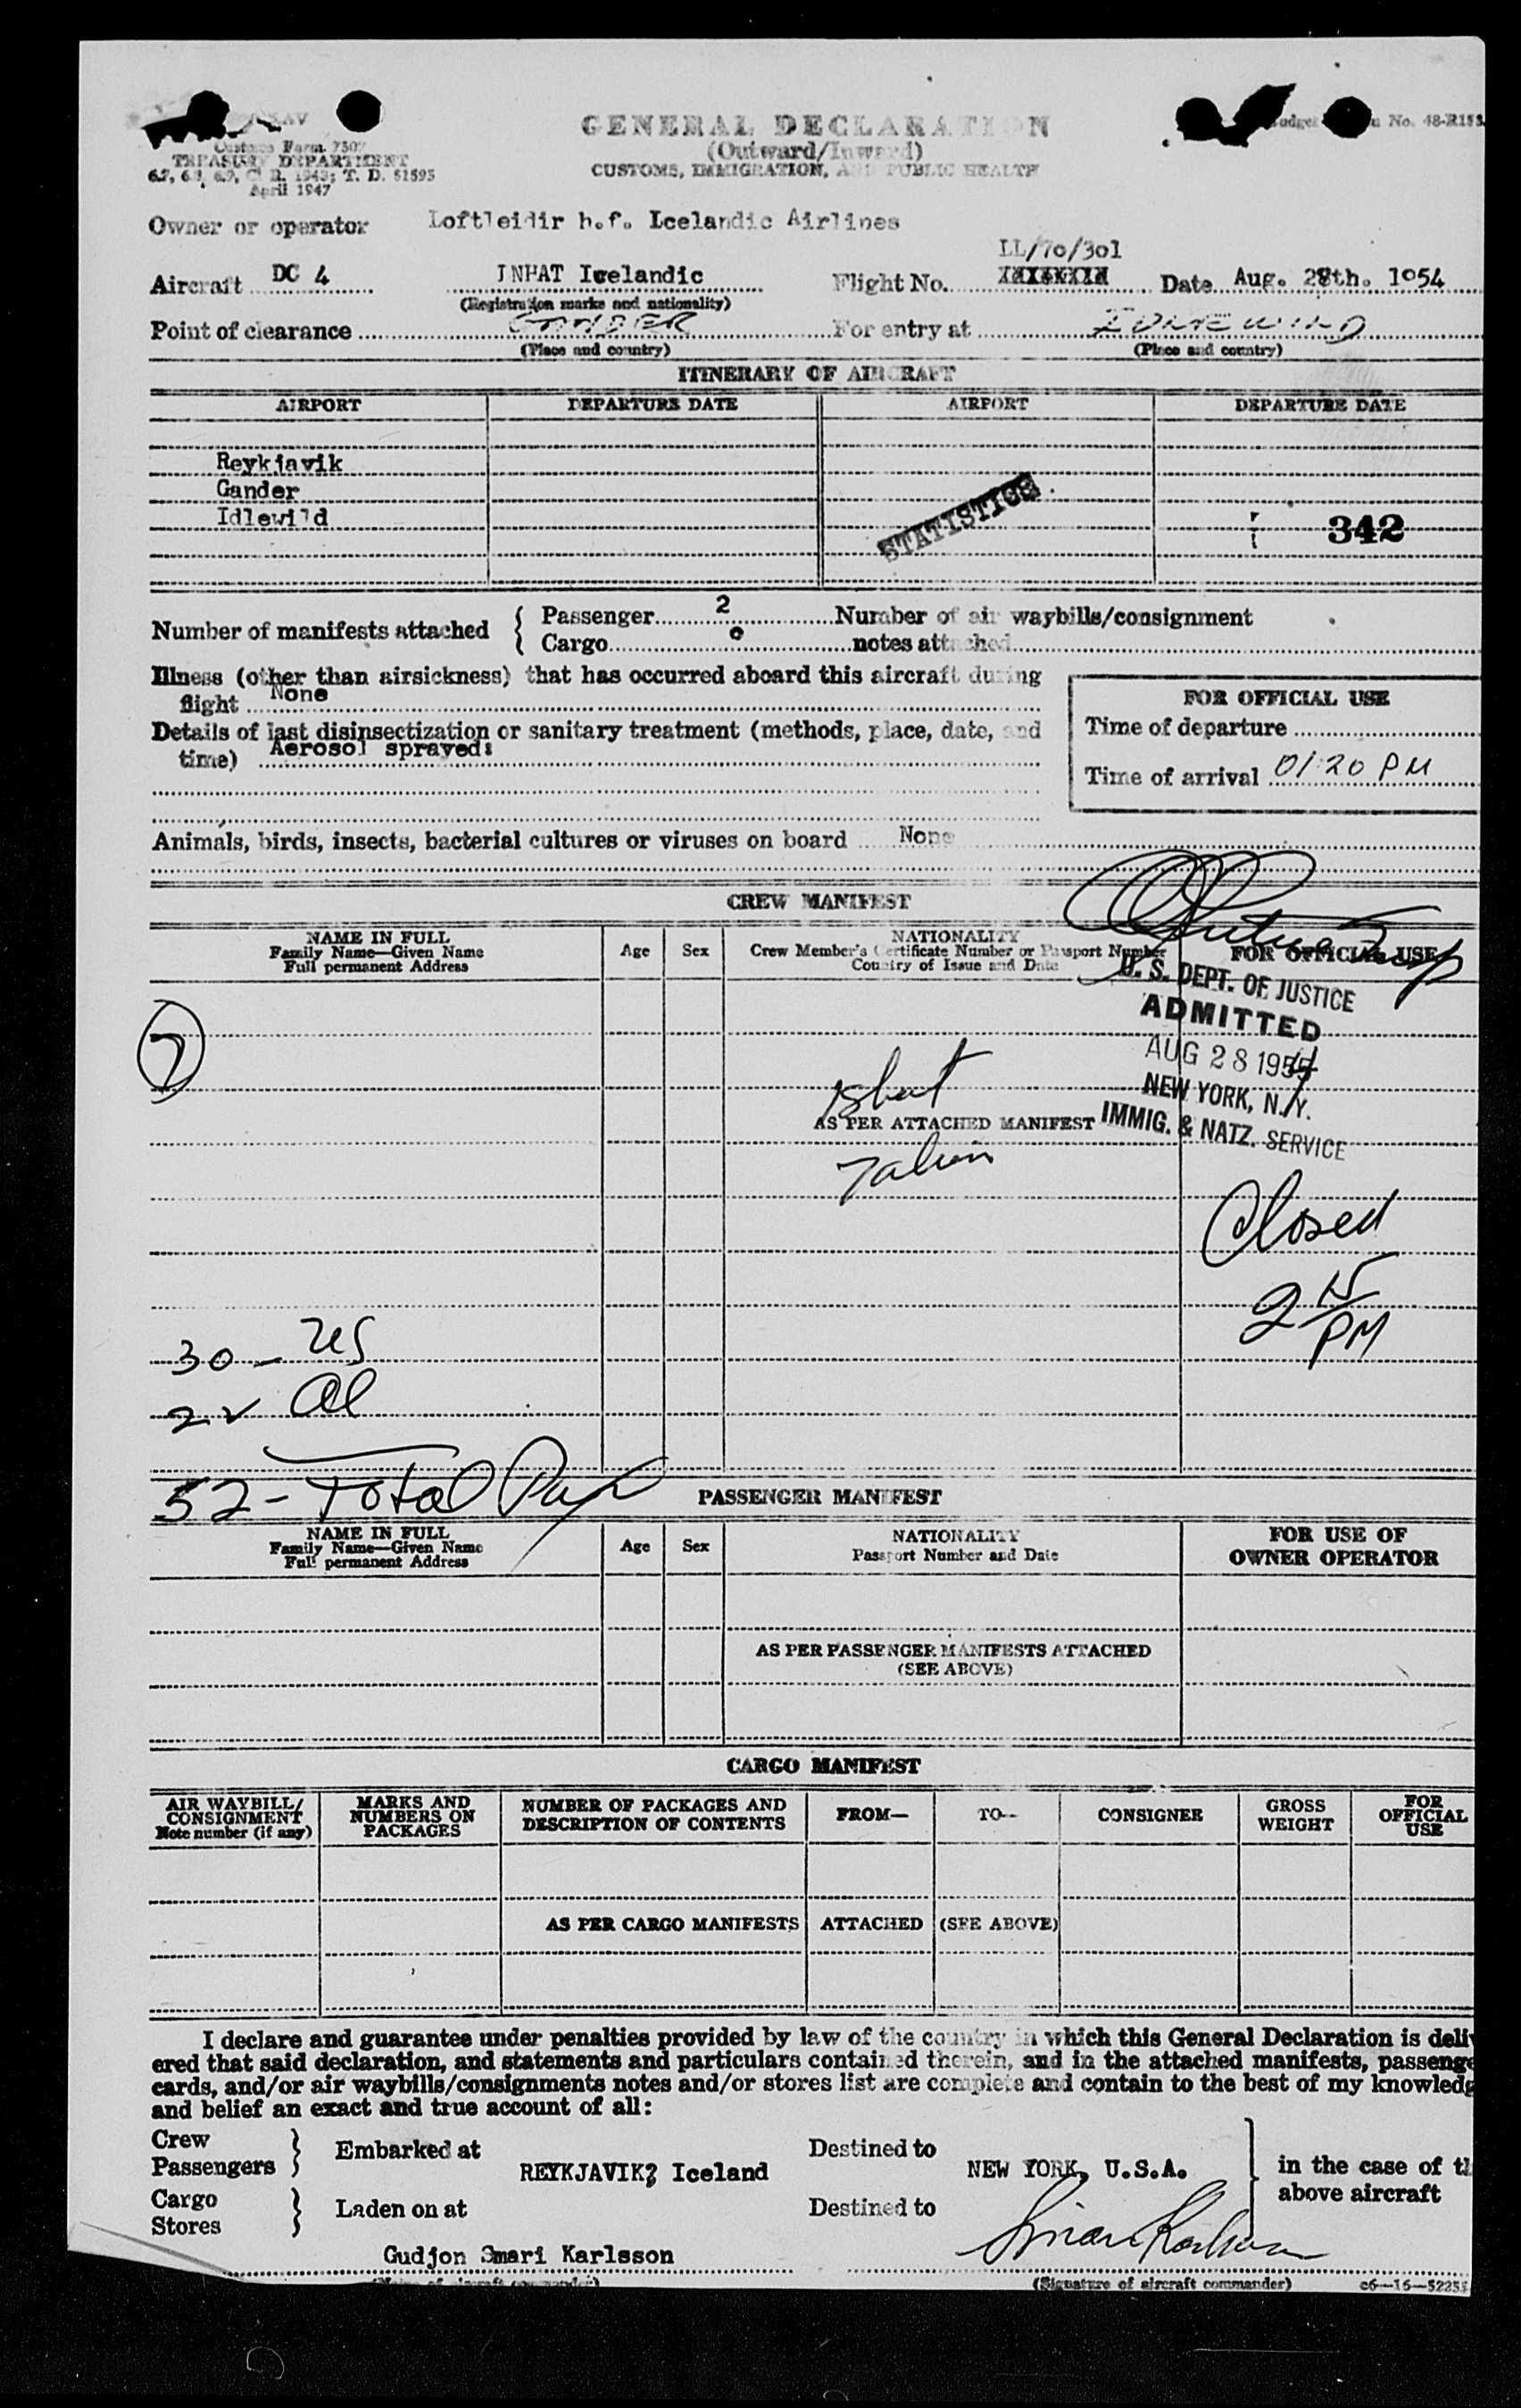 Customs Form 7507
TREASURY DEPARTMENT
April 1947
GENERAL DECLARATION
(Outward/Inward)
CUSTOMS, IMMIGRATION, AND PUBLIC HEALTH
No. 48-R153
Owner or operator Loftleidir h.f. Icelandic Airlines
LL/70/301
Aircraft DC 4 INHAT Icelandic Flight No. Date Aug. 28th. 1954
(Registration marks and nationality)
Point of clearance GANDER For entry at IDLEWILD
(Place and country) (Place and country)
ITINERARY OF AIRCRAFT
AIRPORT DEPARTURE DATE AIRPORT DEPARTURE DATE
Reykjavik
Gander
Idlewild
STATISTICS
342
Number of manifests attached { Passenger 2 Number of air waybills/consignment
Cargo o notes attached
Illness (other than airsickness) that has occurred aboard this aircraft during
flight None
Details of last disinsectization or sanitary treatment (methods, place, date, and
time) Aerosol sprayed:
FOR OFFICIAL USE
Time of departure
Time of arrival 01:20 PM
Animals, birds, insects, bacterial cultures or viruses on board None
CREW MANIFEST
NAME IN FULL
Family Name—Given Name
Full permanent Address
Age Sex
NATIONALITY
Crew Member's Certificate Number or Passport Number
Country of Issue and Date
FOR OFFICIAL USE
U. S. DEPT. OF JUSTICE
ADMITTED
AUG 28 1954
NEW YORK, N.Y.
IMMIG. & NATZ. SERVICE
7
AS PER ATTACHED MANIFEST
Closed
2 15
PM
30 - US
22 Al
52 - Total Pax
PASSENGER MANIFEST
NAME IN FULL
Family Name—Given Name
Full permanent Address
Age Sex
NATIONALITY
Passport Number and Date
FOR USE OF
OWNER OPERATOR
AS PER PASSENGER MANIFESTS ATTACHED
(SEE ABOVE)
CARGO MANIFEST
AIR WAYBILL/
CONSIGNMENT
Note number (if any)
MARKS AND
NUMBERS ON
PACKAGES
NUMBER OF PACKAGES AND
DESCRIPTION OF CONTENTS
FROM— TO— CONSIGNER
GROSS
WEIGHT
FOR
OFFICIAL
USE
AS PER CARGO MANIFESTS ATTACHED (SEE ABOVE)
I declare and guarantee under penalties provided by law of the country in which this General Declaration is deliv
ered that said declaration, and statements and particulars contained therein, and in the attached manifests, passenge
cards, and/or air waybills/consignments notes and/or stores list are complete and contain to the best of my knowledg
and belief an exact and true account of all:
Crew
Passengers } Embarked at REYKJAVIK, Iceland Destined to NEW YORK, U.S.A. } in the case of th
above aircraft
Cargo
Stores } Laden on at Destined to
Gudjon Smari Karlsson Smari Karlsson
(Name of aircraft commander) (Signature of aircraft commander) c6—16—52255